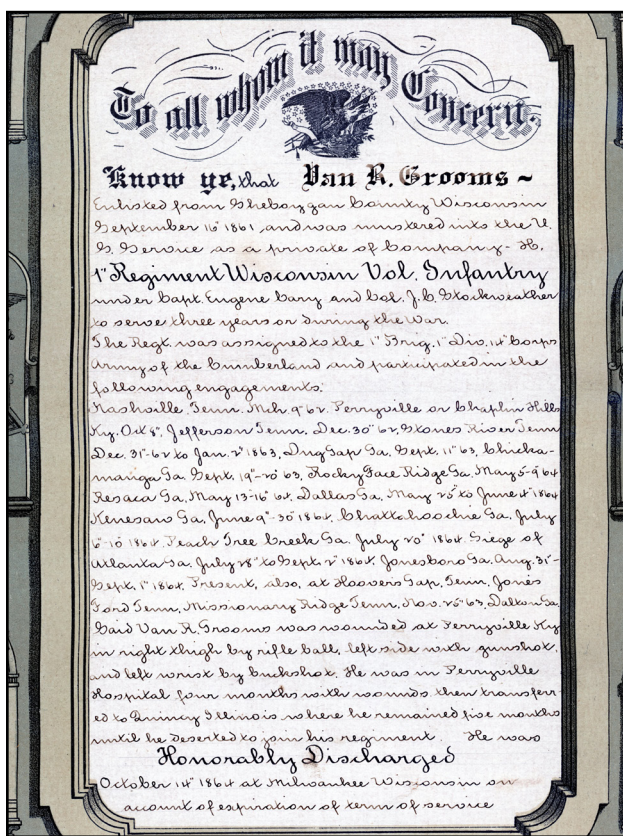 To all whom it may Concern.
Know ye, that Van R. Grooms ~
Enlisted from Sheboygan County Wisconsin
September 16" 1861, and was mustered into the U.
S. Service as a private of Company - H,
1" Regiment Wisconsin Vol. Infantry
under Capt. Eugene Cary and Col. J.C. Stockweather
to serve three years or during the War.
The Regt. was assigned to the 1" Brig. 1" Div. 14" Corps
Army of the Cumberland and participated in the
following engagements:
Nashville Tenn. Mch 9" 62, Perryville or Chaplin Hills
Ky. Oct 8", Jefferson Tenn. Dec. 30" 62, Stones River Tenn
Dec. 31"-62 to Jan. 2" 1863, Dug Gap Ga. Sept. 11" 63, Chicka-
mauga Ga. Sept. 19"-20" 63, Rocky Face Ridge Ga. May 5-9 64
Resaca Ga. May 13-16" 64, Dallas Ga, May 25" to June 4" 1864
Kenesaw Ga, June 9"-30" 1864, Chattahoochie Ga, July
6"-10" 1864, Peach Tree Creek Ga. July 20" 1864. Siege of
Atlanta Ga. July 28" to Sept. 2" 1864, Jonesboro Ga. Aug. 31"-
Sept. 1" 1864. Present, also, at Hoovers Gap, Tenn, Jones
Ford Tenn, Missionary Ridge Tenn, Nov. 25" 63, Dalton Ga.
Said Van R. Grooms was wounded at Perryville Ky
in right thigh by rifle ball, left side with gunshot,
and left wrist by buckshot. He was in Perryville
Hospital four months with wounds then transferr-
ed to Quincy Illinois where he remained five months
until he deserted to join his regiment. He was
Honorably Discharged
October 14" 1864 at Milwaukee Wisconsin on
acount of expiration of term of service